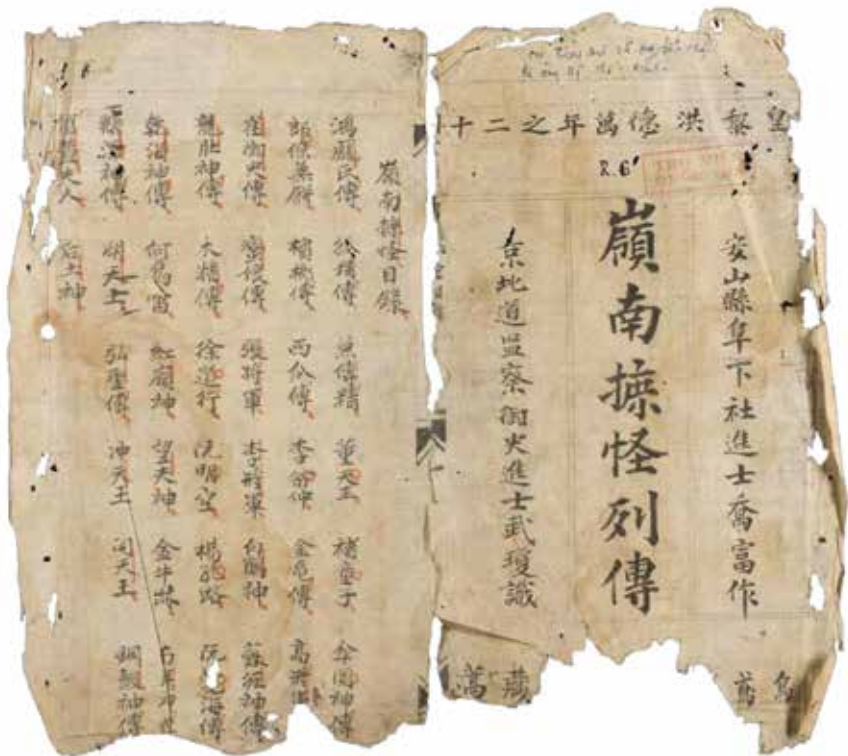 皇黎洪德萬年之二十
8.6
安山縣阜下社進士喬富作
嶺南摭怪列傳
京北道監察御史進士武瓊識
嶺南摭怪目錄
鴻厖氏傳 精傳 魚傳精 董天王 補童子 傘圓神傳
郎僚蒸餅 檳榔傳 西瓜傳 李翁仲 金龜傳
崔御史傳 蠻娘傳 張將軍 李將軍 白鶴神 蘇瀝神傳
龍肚神傳 木精傳 徐道行 阮明空 楊孔路 阮海傳
乾海神傳 何烏雷 紅嶺神 望夫神 金牛傳
神傳 明天王 弘聖傳 冲天王 開天王 銅鼓神傳
夫人 后土神